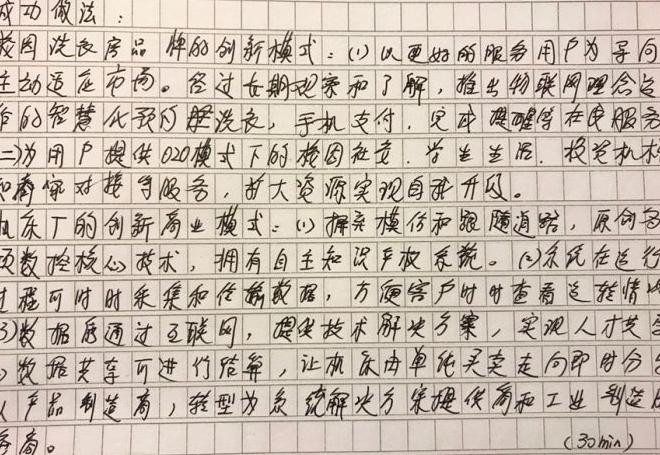 成功做法：
校园洗衣房品牌的创新模式：(1)以更好的服务用户为导向
主动适应市场。经过长期观察和了解，推出物联网理念运
作的智慧化预约 洗衣，手机支付，完成提醒等在线服务
(二)为用户提供O2O模式下的校园社交、学生生活、校党机构
和商家对接等服务，扩大资源实现自我升级。
机床厂的创新商业模式：(1)摒弃模仿和跟随道路，原创多
项数控核心技术，拥有自主知识产权系统。(2)系统在运行
过程可时时采集和传输数据，方便客户时时查看运转情况
(3)数据后通过互联网，提供技术解决方案，实现人才共享
数据共享可进行结算，让机床由单纯买卖走向即时分享
从产品制造商，转型为系统解决方案提供商和工业制造服
务商。 （30min）